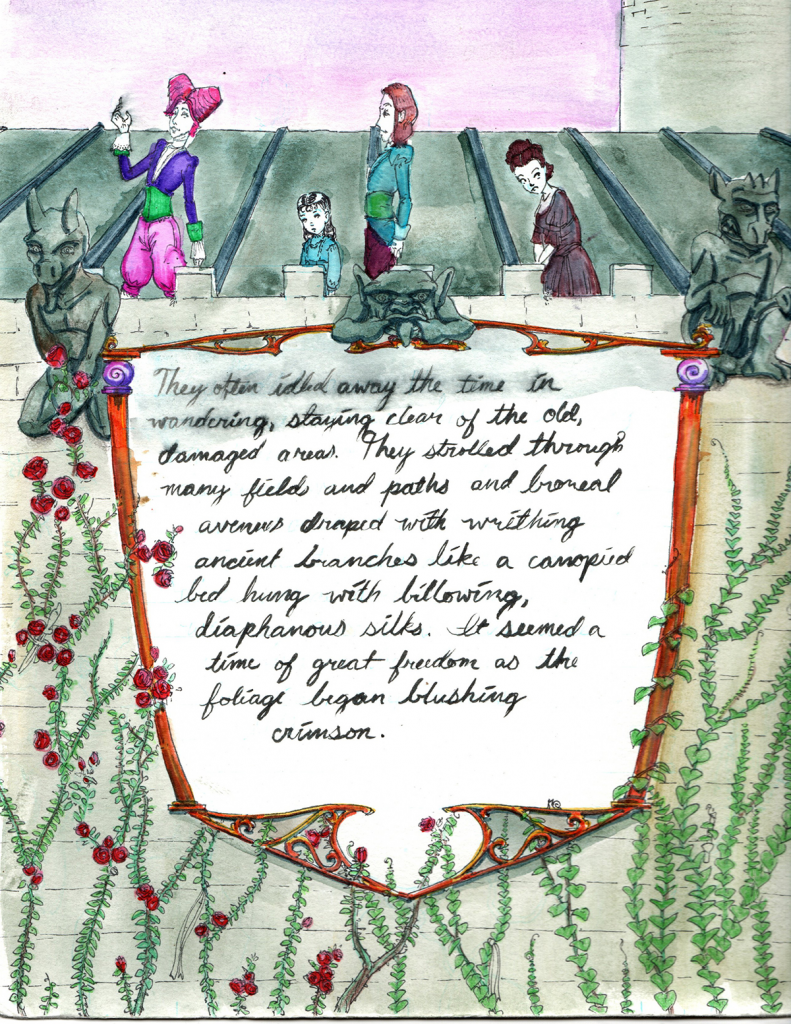 They often idled away the time in
wandering, staying clear of the old,
damaged areas. They strolled through
many fields and paths and boreal
avenues draped with writhing
ancient branches like a canopied
bed hung with billowing,
diaphanous silks. It seemed a
time of great freedom as the
foliage began blushing
crimson.